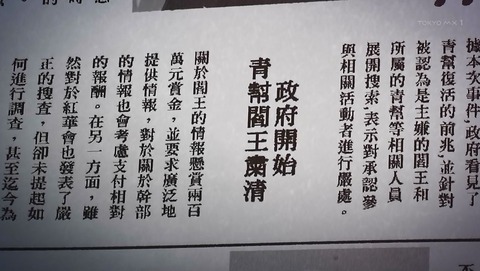 TOKYO MX 1
據本次事件,政府看見了
青幫復活的前兆,並針對
被認為是主嫌的閻王和
所屬的青幫等相關人員
展開搜索,表示對承認參
與相關活動者進行嚴處。
政府開始
青幫閻王粛清
關於閻王的情報懸賞兩百
萬元賞金，並要求廣泛地
提供情報，對於關於幹部
的情報也會考慮支付相對
的報酬。在另一方面，雖
然對於紅華會也發表了嚴
正的搜查，但卻未提起如
何進行調查，甚至迄今為